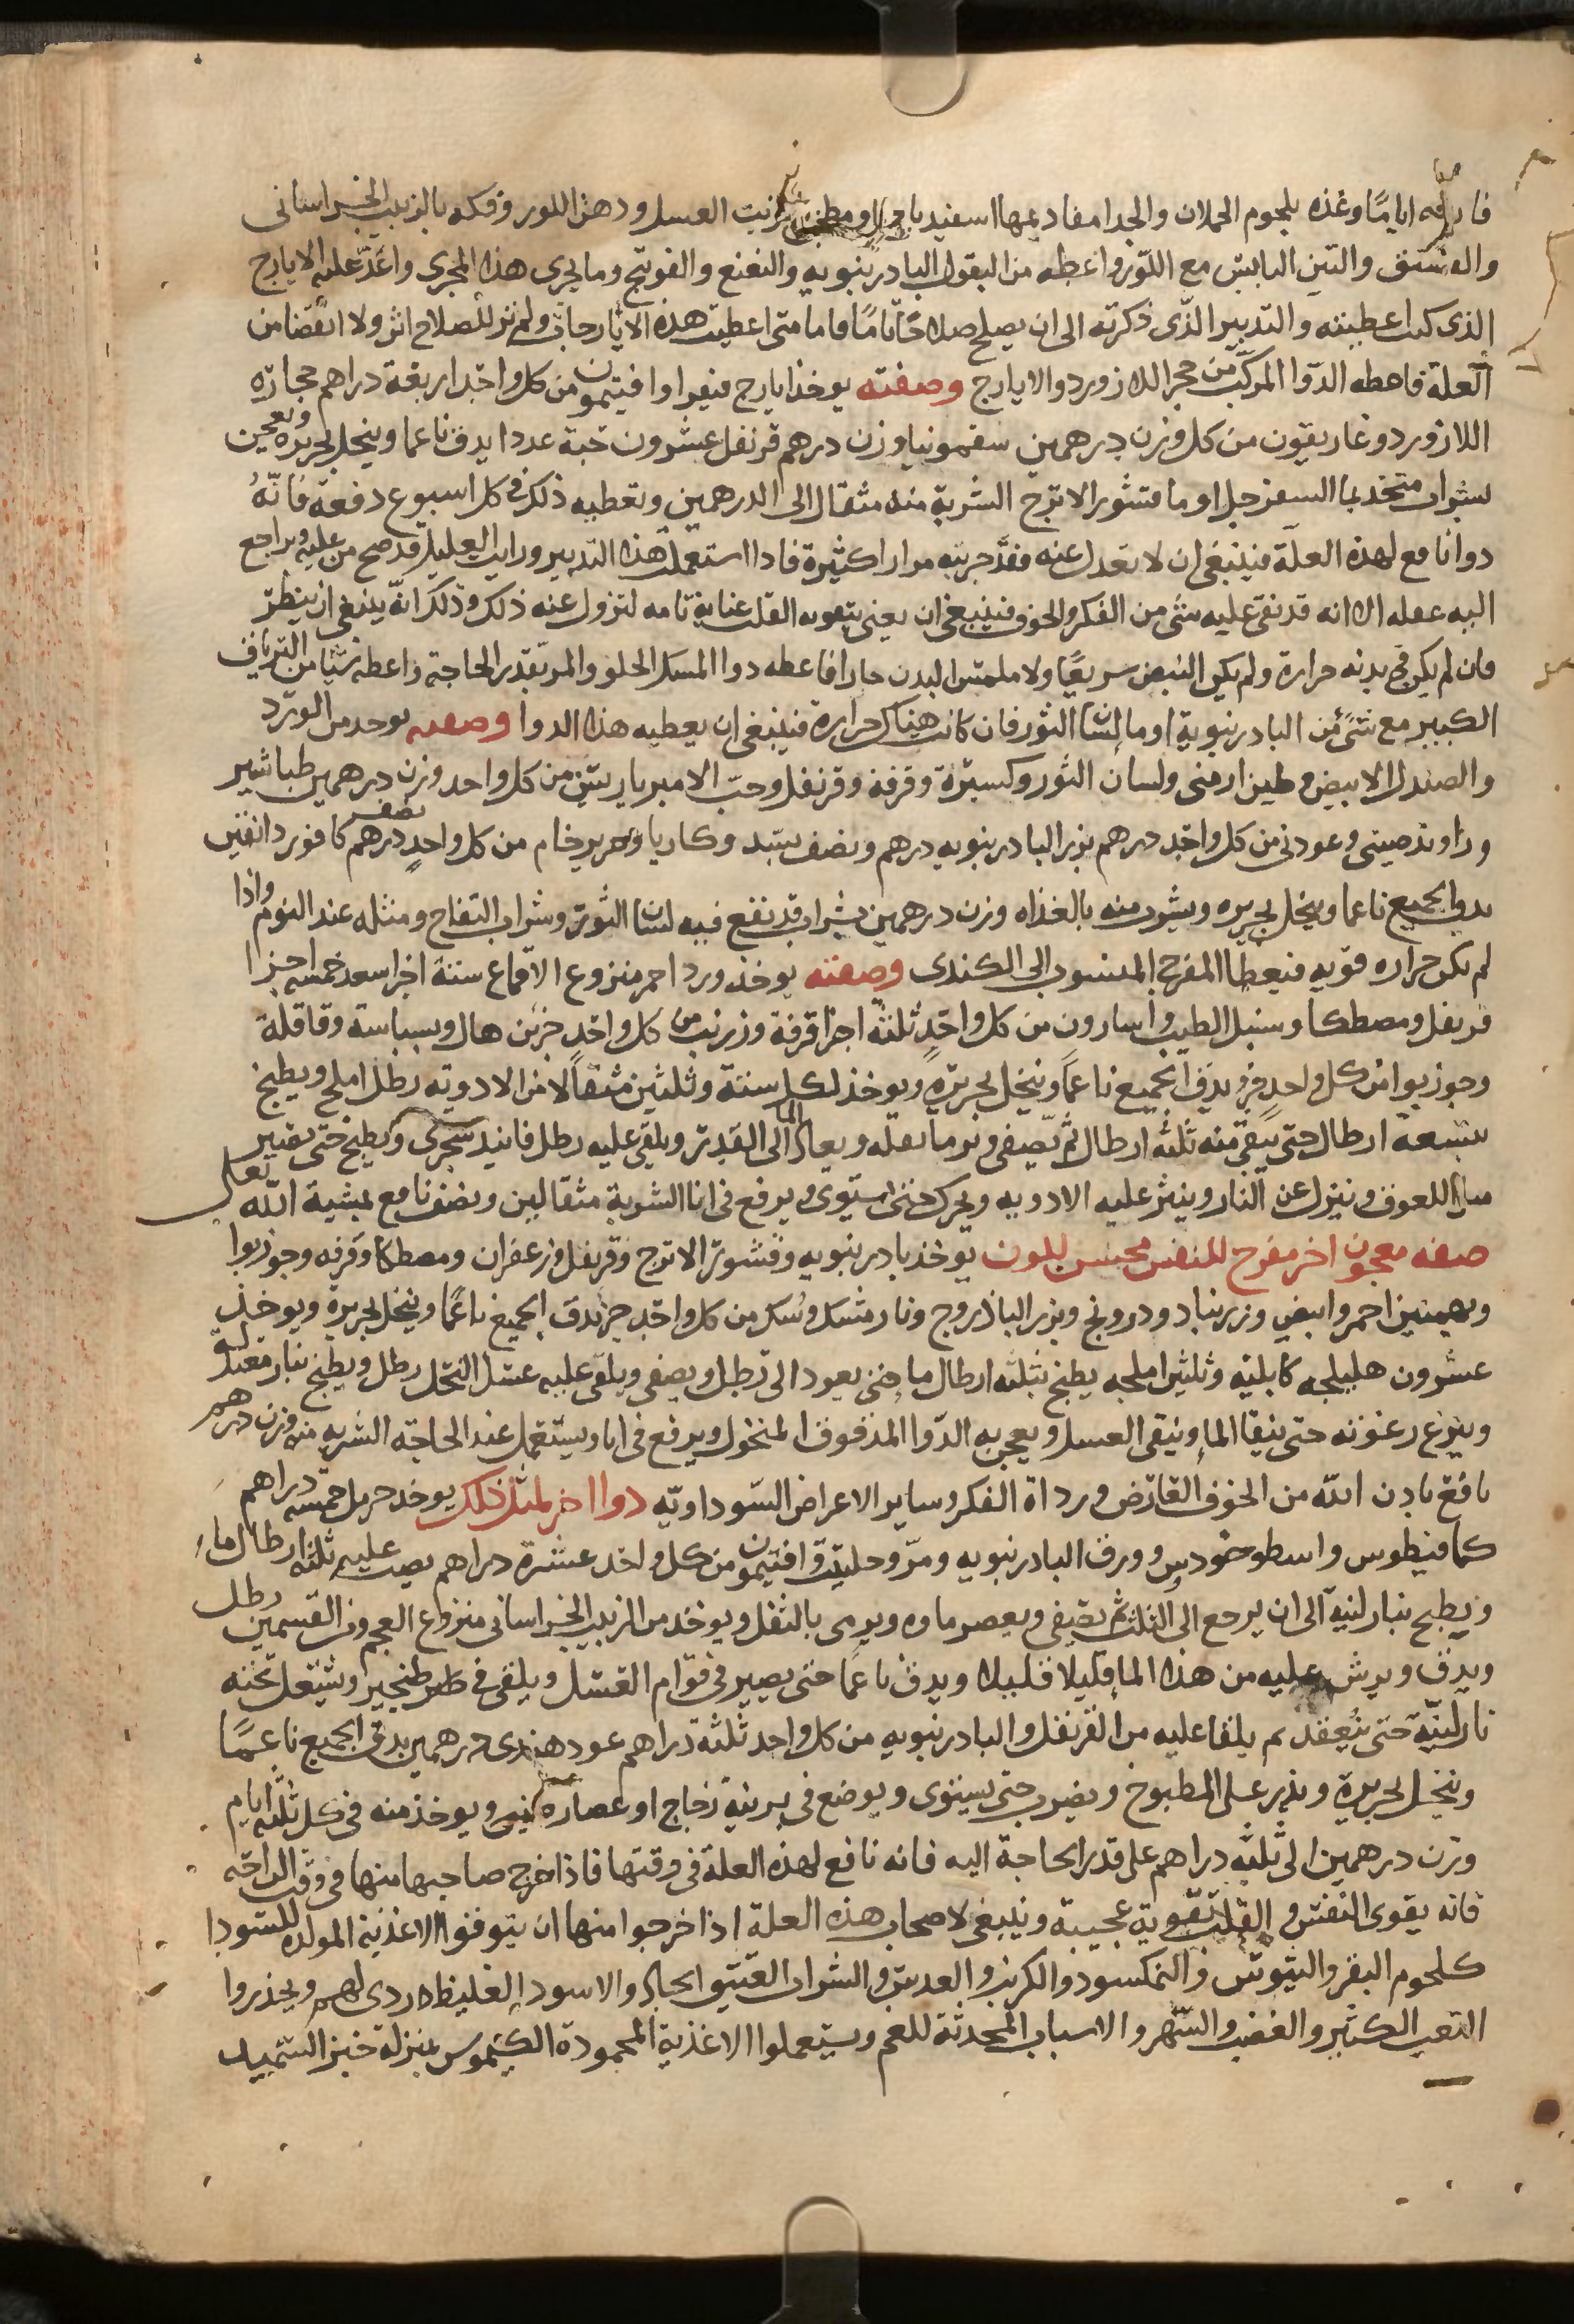 فارفه اياما وغذه بلحوم الحملان والجدا مفاديمها اسفيدباجا او مطجن بزيت العسل ودهن اللوز وفكهه بالزبيب الخراسانى
والفستق والتين اليابس مع اللوز واعطه من البقول البادرنبويه والنعنع والفوتنج وما يجرى هذا المجرى واعد عليه الايارج
الذى كنت اعطيته والتدبير الذى ذكرته الى ان يصلح صلاحا تاما فاما متى اعطيت هذه الايارجات ولم تر للصلاح اثر ولا انقضا من
العلة فاعطه الدوا المركب من حجر اللازورد والايارج وصفته يوخذ ايارج فيقرا وافتيمون من كل واحد اربعة دراهم حجارة
اللازورد وغاريقون من كل وزن درهمين سقمونيا وزن درهم قرنفل عشرون حبة عددا يدق ناعما وينخل بحريره ويعجن
بشراب متخذ بما السفرجل او ما قشور الاترج الشربة منه مثقال الى الدرهمين وتعطيه ذلك فى كل اسبوع دفعة فانه
دوا نافع لهذه العلة فينبغى ان لا تعدل عنه فقد جربته مرارا كثيرة فاذا استعملت هذا التدبير ورايت العليل قد صح من علته وتراجع
اليه عقله الا انه قد بقى عليه شى من الفكر والخوف فينبغى ان يعنى بتقويه القلب عناية تامه لتزول عنه ذلك وذلك انه ينبغى ان ينظر
فان لم يكن فى بدنه حرارة ولم يكن النبض سريعا ولا ملمس البدن حارا فاعطه دوا المسك الحلو والمر بقدر الحاجة واعطه شيا من الترياق
الكبير مع شى من البادرنبوية او ما لسان الثور فان كانت هناك حرارة فينبغى ان يعطيه هذا الدوا وصفته يوخذ من الورد
والصندل الابيض وطين ارمنى ولسان الثور وكسبرة وقرفة وقرنفل وحب الامبرباريس من كل واحد وزن درهمين طباشير
وراوند صينى وعود نى من كل واحد درهم بزر البادرنبويه درهم ونصف بسد وكاربا وحرير خام من كل واحد نصف درهم كافور دانقين
يدق الجميع ناعما وينخل بحريره ويشرب منه بالغداه وزن درهمين بشراب قد نقع فيه لسان الثور وشراب التفاح ومثله عند النوم واذا
لم تكن حراره قويه فيعطا المفرح المنسوب الى الكندى وصفته يوخذ ورد احمر منزوع الاقماع ستة اجزا سعد خمسه اجزا
قرنفل ومصطكا وسنبل الطيب واسارون من كل واحد ثلثة اجزا قرفة وزرنب من كل واحد جزين هال وبسباسة وقاقلة
وجوزبوا من كل واحد جز يدق الجميع ناعما وينخل بحريرة ويوخذ لكل ستة وثلثين مثقالا من الادويه رطل املج ويطبخ
بتسعة ارطال حتى يبقى منه ثلثه ارطال ثم يصفى ويرما بثفله ويعاد الما الى القدر ويلقى عليه رطل فانيد سجزى ويطبخ حتى يصير
مثل اللعوق وينزل عن النار وينثر عليه الادويه ويحرك حتى استوى ويرفع فى انا الشربة مثقالين ونصف نافع بمشية الله تعالى
صفه معجون اخر مفرح للنفس محسن للون يوخذ بادرنبويه وقشور الاترج وقرنفل وزعفران ومصطكا وقرفه وجوزبوا
وبهمنين احمر وابيض وزرنباد ودرونج وبزر الباذروج ونارمشك وسك من كل واحد جز يدق الجميع ناعما وينخل بحريرة ويوخذ
عشرون هليلجه كابليه وثلثين املجه يطبخ بثلثه ارطال ما حتى يعود الى رطل ويصفى ويلقى عليه عسل النحل رطل ويطبخ بنار معتدلة
وينزع رغوته حتى يفنا الما ويبقى العسل ويعجن به الدوا المدقوق المنخول ويرفع فى انا ويستعمل عند الحاجه الشربه منه وزن درهم
نافع باذن الله من الخوف العارض ورداة الفكر وساير الاعراض السوداويه دوا اخر لمثل ذلك يوخذ حرمل خمسه دراهم
كمافيطوس واسطوخودس وورق البادرنبويه ومر وحلتيت وافتيمون من كل واحد عشرة دراهم يصب عليه ثلثه ارطال ما
ويطبخ بنار لينه الى ان يرجع الى الثلث ثم يصفى ويعصر ماوه ويرمى بالثفل ويوخذ من الزبيب الخراسانى منزوع العجم وزن القسمين رطل
ويدق ويرش عليه من هذا الما قليلا قليلا ويدق ناعما حتى يصير فى قوام العسل ويلقى فى طنجير وتشعل تحته
نار لينة حتى ينعقد ثم يلقا عليه من القرنفل والبادرنبويه من كل واحد ثلثه دراهم عود هندى درهمين يدق الجميع ناعما
وينخل بحريرة ويذر على المطبوخ ويضرب حتى يستوى ويوضع فى برنية زجاج او عضاره صينى ويوخذ منه فى كل ثلثة ايام
وزن درهمين الى ثلثه دراهم على قدر الحاجة اليه فانه نافع لهذه العلة فى وقتها فاذا خرج صاحبها منها فى وقت الراحه
فانه يقوى النفس والقلب تقوية عجيبة وينبغى لاصحاب هذه العلة اذا خرجوا منها ان يتوقفوا الاغذية المولده للسودا
كلحوم البقر والتيوس والنمكسود والكرنب والعدس والشراب العتيق الحاد والاسود الغليظ ردى لهم ويحذروا
التعب الكثير والغضب والسهر والاسباب المحدثة للغم ويستعملوا الاغذية المحمودة الكيموس بمنزلة خبز السميد